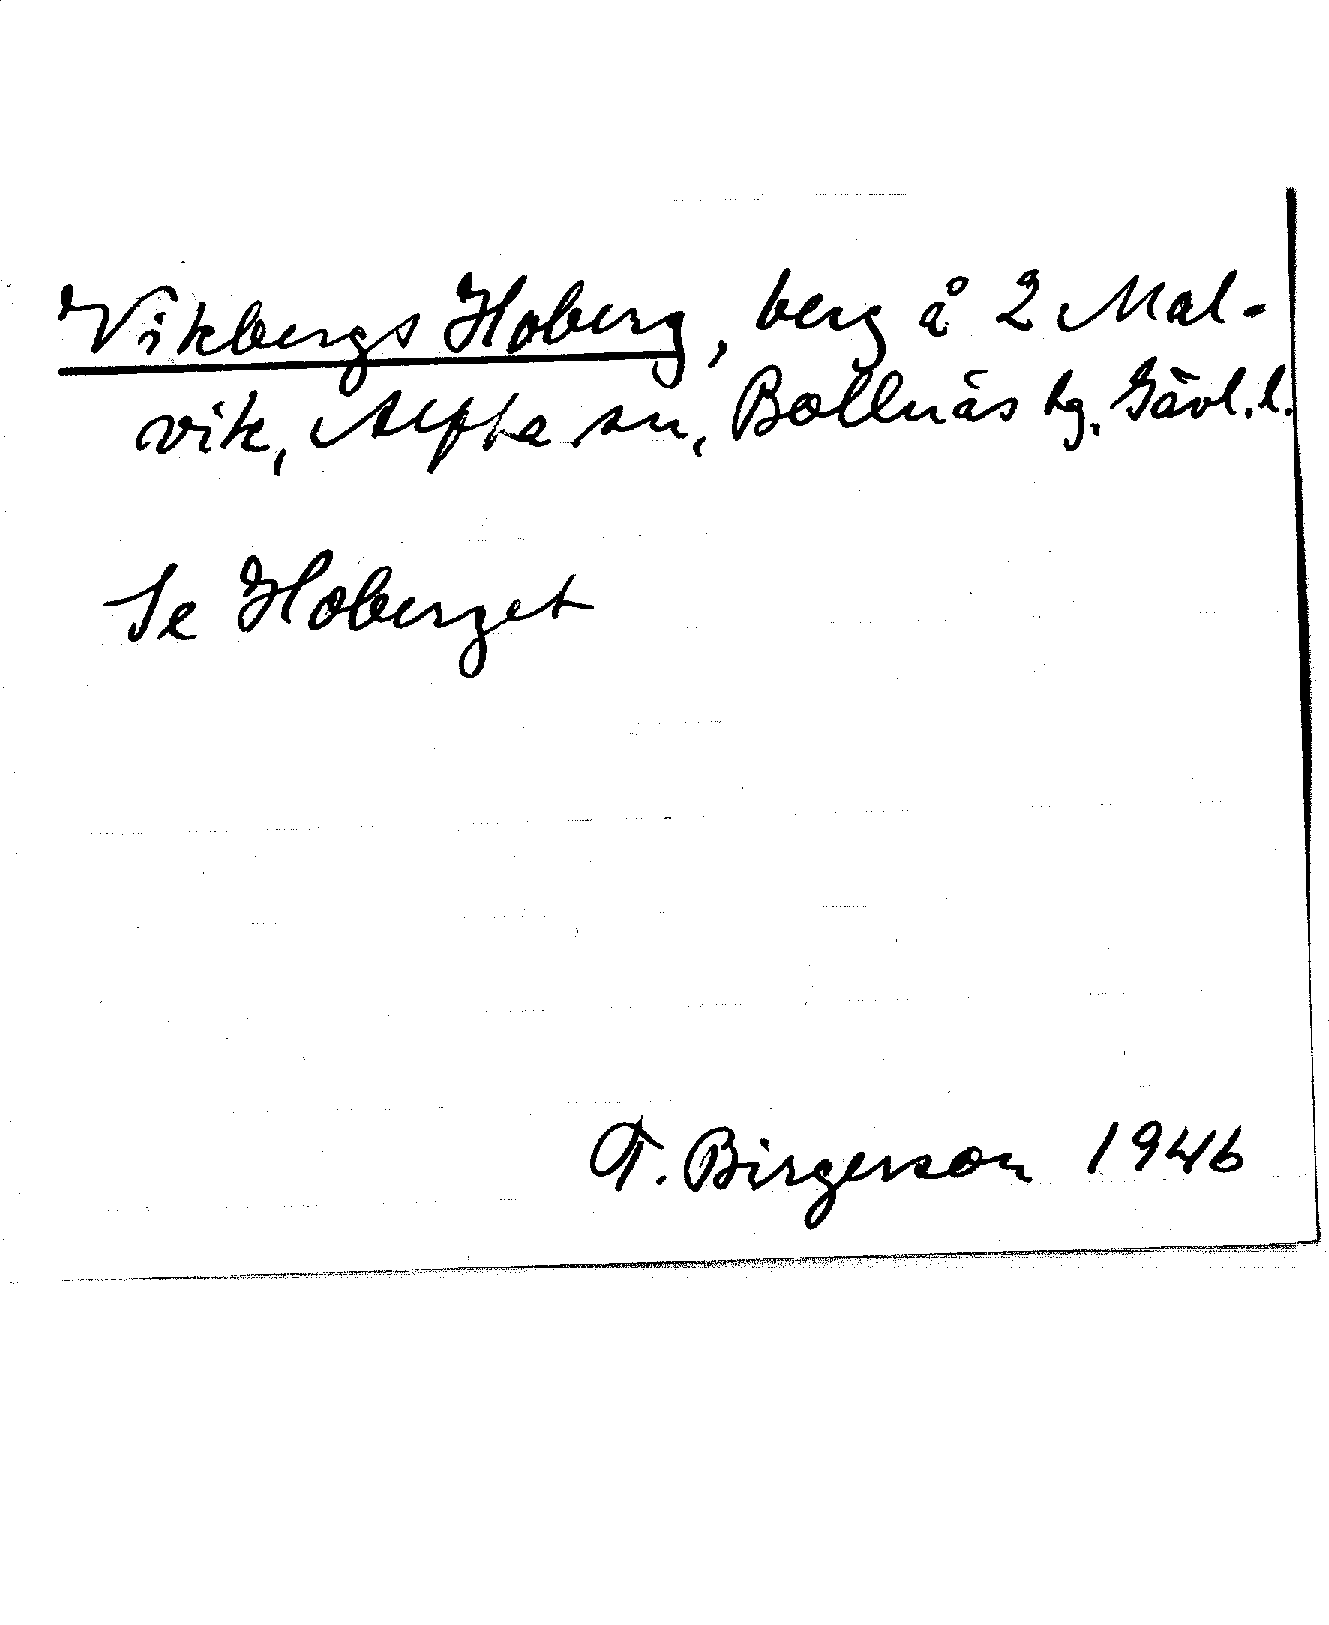 Vikbergs Hoberg, berg å 2 Mal-
vik, Alfta sn, Bollnäs tg. Gävl.l.
Se Hoberget
T. Birgerson 1946